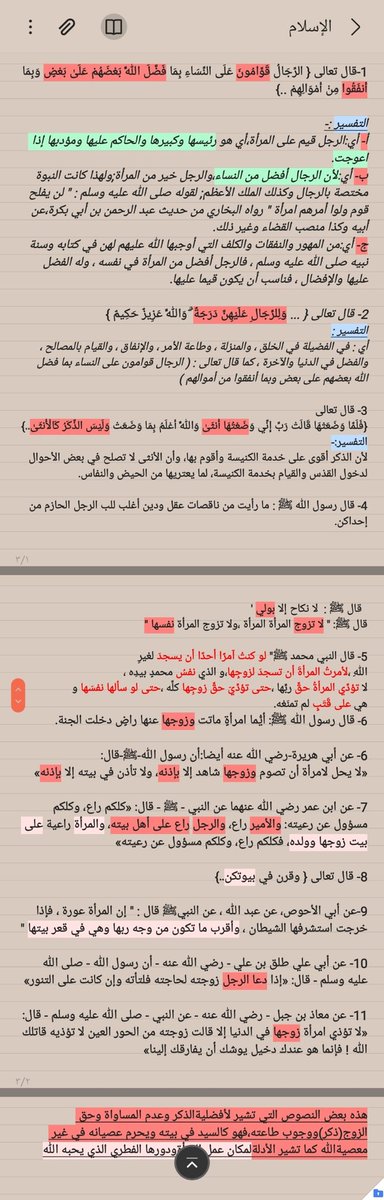 الإسلام
1-قال تعالى { الرِّجَالُ قَوَّامُونَ عَلَى النِّسَاءِ بِمَا فَضَّلَ اللَّهُ بَعْضَهُمْ عَلَىٰ بَعْضٍ وَبِمَا
أَنفَقُوا مِنْ أَمْوَالِهِمْ ..}
التفسير :-
أ- أي:الرجل قيم على المرأة،أي هو رئيسها وكبيرها والحاكم عليها ومؤدبها إذا
اعوجت.
ب- أي:لأن الرجال أفضل من النساء،والرجل خير من المرأة;ولهذا كانت النبوة
مختصة بالرجال وكذلك الملك الأعظم; لقوله صلى الله عليه وسلم : " لن يفلح
قوم ولوا أمرهم امرأة " رواه البخاري من حديث عبد الرحمن بن أبي بكرة،عن
أبيه وكذا منصب القضاء وغير ذلك.
ج- أي:من المهور والنفقات والكلف التي أوجبها الله عليهم لهن في كتابه وسنة
نبيه صلى الله عليه وسلم ، فالرجل أفضل من المرأة في نفسه ، وله الفضل
عليها والإفضال ، فناسب أن يكون قيما عليها.
2- قال تعالى { ... وَلِلرِّجَالِ عَلَيْهِنَّ دَرَجَةٌ ۗ وَاللَّهُ عَزِيزٌ حَكِيمٌ }
التفسير :
أي : في الفضيلة في الخلق ، والمنزلة ، وطاعة الأمر ، والإنفاق ، والقيام بالمصالح ،
والفضل في الدنيا والآخرة ، كما قال تعالى : ( الرجال قوامون على النساء بما فضل
الله بعضهم على بعض وبما أنفقوا من أموالهم )
3- قال تعالى
{فَلَمَّا وَضَعَتْهَا قَالَتْ رَبِّ إِنِّي وَضَعْتُهَا أُنثَىٰ وَاللَّهُ أَعْلَمُ بِمَا وَضَعَتْ وَلَيْسَ الذَّكَرُ كَالْأُنثَىٰ..}
التفسير:-
لأن الذكر أقوى على خدمة الكنيسة وأقوم بها، وأن الأنثى لا تصلح في بعض الأحوال
لدخول القدس والقيام بخدمة الكنيسة، لما يعتريها من الحيض والنفاس.
4- قال رسول الله ﷺ : ما رأيت من ناقصات عقل ودين أغلب للب الرجل الحازم من
إحداكن.
٣/١
قال ﷺ : لا نكاح إلا بولي '
قال ﷺ: " لا تزوج المرأة المرأة ،ولا تزوج المرأة نفسها "
5- قال النبي محمد ﷺ" لو كنتُ آمرًا أحدًا أن يسجدَ لغيرِ
اللهِ ،لأمرتُ المرأةَ أن تسجدَ لزوجِها،و الذي نفسُ محمدٍ بيدِه ،
لا تؤدِّي المرأةُ حقَّ ربِّها ،حتى تؤدِّيَ حقَّ زوجِها كلَّه ،حتى لو سألها نفسَها و
هي على قَتَبٍ لم تمنَعْه.
6- قال رسول الله ﷺ: أيُّما امرأةٍ ماتت وزوجها عنها راضٍ دخلت الجنة.
6- عن أبي هريرة-رضي الله عنه أيضا:أن رسول الله-ﷺ-قال:
«لا يحل لامرأة أن تصوم وزوجها شاهد إلا بإذنه، ولا تأذن في بيته إلا بإذنه»
7- عن ابن عمر رضي الله عنهما عن النبي - ﷺ - قال: «كلكم راع، وكلكم
مسؤول عن رعيته: والأمير راع، والرجل راع على أهل بيته، والمرأة راعية على
بيت زوجها وولده، فكلكم راع، وكلكم مسؤول عن رعيته»
8- قال تعالى { وقرن في بيوتكن..}
9-عن أبي الأحوص، عن عبد الله ، عن النبيﷺ قال : " إن المرأة عورة ، فإذا
خرجت استشرفها الشيطان ، وأقرب ما تكون من وجه ربها وهي في قعر بيتها "
10- عن أبي علي طلق بن علي - رضي الله عنه - أن رسول الله - صلى الله
عليه وسلم - قال: «إذا دعا الرجل زوجته لحاجته فلتأته وإن كانت على التنور»
11- عن معاذ بن جبل - رضي الله عنه - عن النبي - صلى الله عليه وسلم - قال:
«لا تؤذي امرأة زوجها في الدنيا إلا قالت زوجته من الحور العين لا تؤذيه قاتلك
الله ! فإنما هو عندك دخيل يوشك أن يفارقك إلينا»
٣/٢
هذه بعض النصوص التي تشير لأفضليةالذكر وعدم المساواة وحق
الزوج(ذكر)ووجوب طاعته،فهو كالسيد في بيته ويحرم عصيانه في غير
معصيةالله كما تشير الأدلةلمكان عمل ودورها الفطري الذي يحبه الله